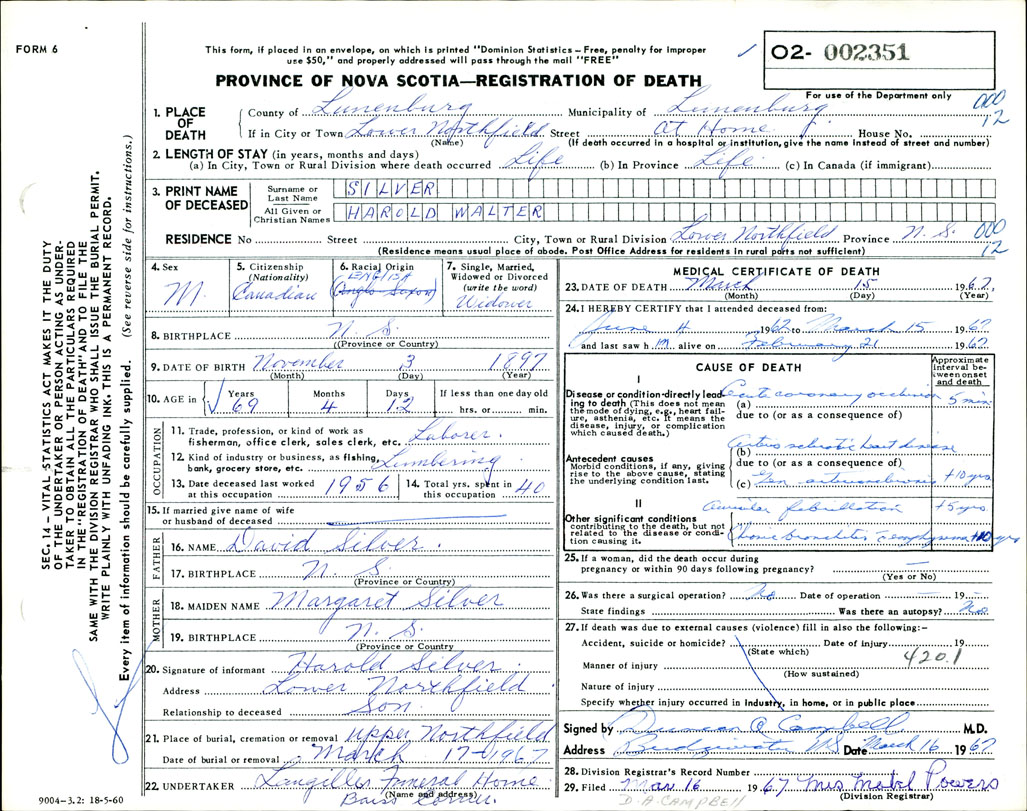 FORM 6
This form, if placed in an envelope, on which is printed "Dominion Statistics – Free, penalty for improper
use $50," and properly addressed will pass through the mail "FREE"
PROVINCE OF NOVA SCOTIA—REGISTRATION OF DEATH
O2- 002351
For use of the Department only
000
12
1. PLACE OF DEATH
County of Lunenburg Municipality of Lunenburg
If in City or Town Lower Northfield Street At Home House No.
(Name) (If death occurred in a hospital or institution, give the name instead of street and number)
2. LENGTH OF STAY (in years, months and days)
(a) In City, Town or Rural Division where death occurred Life (b) In Province Life (c) In Canada (if immigrant)
3. PRINT NAME OF DECEASED
Surname or Last Name SILVER
All Given or Christian Names HAROLD WALTER
RESIDENCE No Street City, Town or Rural Division Lower Northfield Province N. S.
000
12
(Residence means usual place of abode. Post Office Address for residents in rural parts not sufficient)
4. Sex M.
5. Citizenship (Nationality) Canadian
6. Racial Origin ENGLISH (Anglo Saxon)
7. Single, Married, Widowed or Divorced (write the word) Widower
8. BIRTHPLACE N. S.
(Province or Country)
9. DATE OF BIRTH November 3 1897
(Month) (Day) (Year)
10. AGE in Years 69 Months 4 Days 12 If less than one day old hrs. or min.
OCCUPATION
11. Trade, profession, or kind of work as
fisherman, office clerk, sales clerk, etc. Laborer.
12. Kind of industry or business, as fishing,
bank, grocery store, etc. Lumbering
13. Date deceased last worked at this occupation 1956
14. Total yrs. spent in this occupation 40
15. If married give name of wife
or husband of deceased
FATHER
16. NAME David Silver.
17. BIRTHPLACE N. S.
(Province or Country)
MOTHER
18. MAIDEN NAME Margaret Silver
19. BIRTHPLACE N. S.
(Province or Country)
20. Signature of informant Harold Silver.
Address Lower Northfield
Relationship to deceased Son.
21. Place of burial, cremation or removal Upper Northfield
Date of burial or removal March 17-1967
22. UNDERTAKER Langilles Funeral Home
(Name and address)
MEDICAL CERTIFICATE OF DEATH
23. DATE OF DEATH March 15 1967.
(Month) (Day) (Year)
24. I HEREBY CERTIFY that I attended deceased from:
June 4 1962 to March 15 1967
and last saw h im alive on February 21 1967
CAUSE OF DEATH
Approximate interval between onset and death
I
Disease or condition directly leading to death (This does not mean the mode of dying, e.g., heart failure, asthenia, etc. It means the disease, injury, or complication which caused death.)
(a) Acute coronary occlusion 5 min
due to (or as a consequence of)
Antecedent causes
Morbid conditions, if any, giving rise to the above cause, stating the underlying condition last.
(b) Arterio sclerotic heart disease
due to (or as a consequence of)
(c) Gen. arteriosclerosis +10 yrs
II
Other significant conditions contributing to the death, but not related to the disease or condition causing it.
Auricular fibrillation +5 yrs
Chronic bronchitis emphysema +10 yrs
25. If a woman, did the death occur during
pregnancy or within 90 days following pregnancy? —
(Yes or No)
26. Was there a surgical operation? No Date of operation — 19 —
State findings Was there an autopsy? No.
27. If death was due to external causes (violence) fill in also the following:–
Accident, suicide or homicide? Date of injury 19
(State which)
420.1
Manner of injury
(How sustained)
Nature of injury
Specify whether injury occurred in industry, in home, or in public place
Signed by Duncan A Campbell M.D.
Address Bridgewater N.S. Date March 16 1967
28. Division Registrar's Record Number
29. Filed Mar. 16 1967 Mrs Mabel Powers
(Division Registrar)
D-A-CAMPBELL
SEC. 14 – VITAL STATISTICS ACT MAKES IT THE DUTY
OF THE UNDERTAKER OR PERSON ACTING AS UNDER-
TAKER TO OBTAIN ALL THE PARTICULARS REQUIRED
IN THE "REGISTRATION OF DEATH" AND TO FILE THE
SAME WITH THE DIVISION REGISTRAR WHO SHALL ISSUE THE BURIAL PERMIT.
WRITE PLAINLY WITH UNFADING INK. THIS IS A PERMANENT RECORD.
Every item of information should be carefully supplied. (See reverse side for instructions.)
9004–3.2: 18-5-60